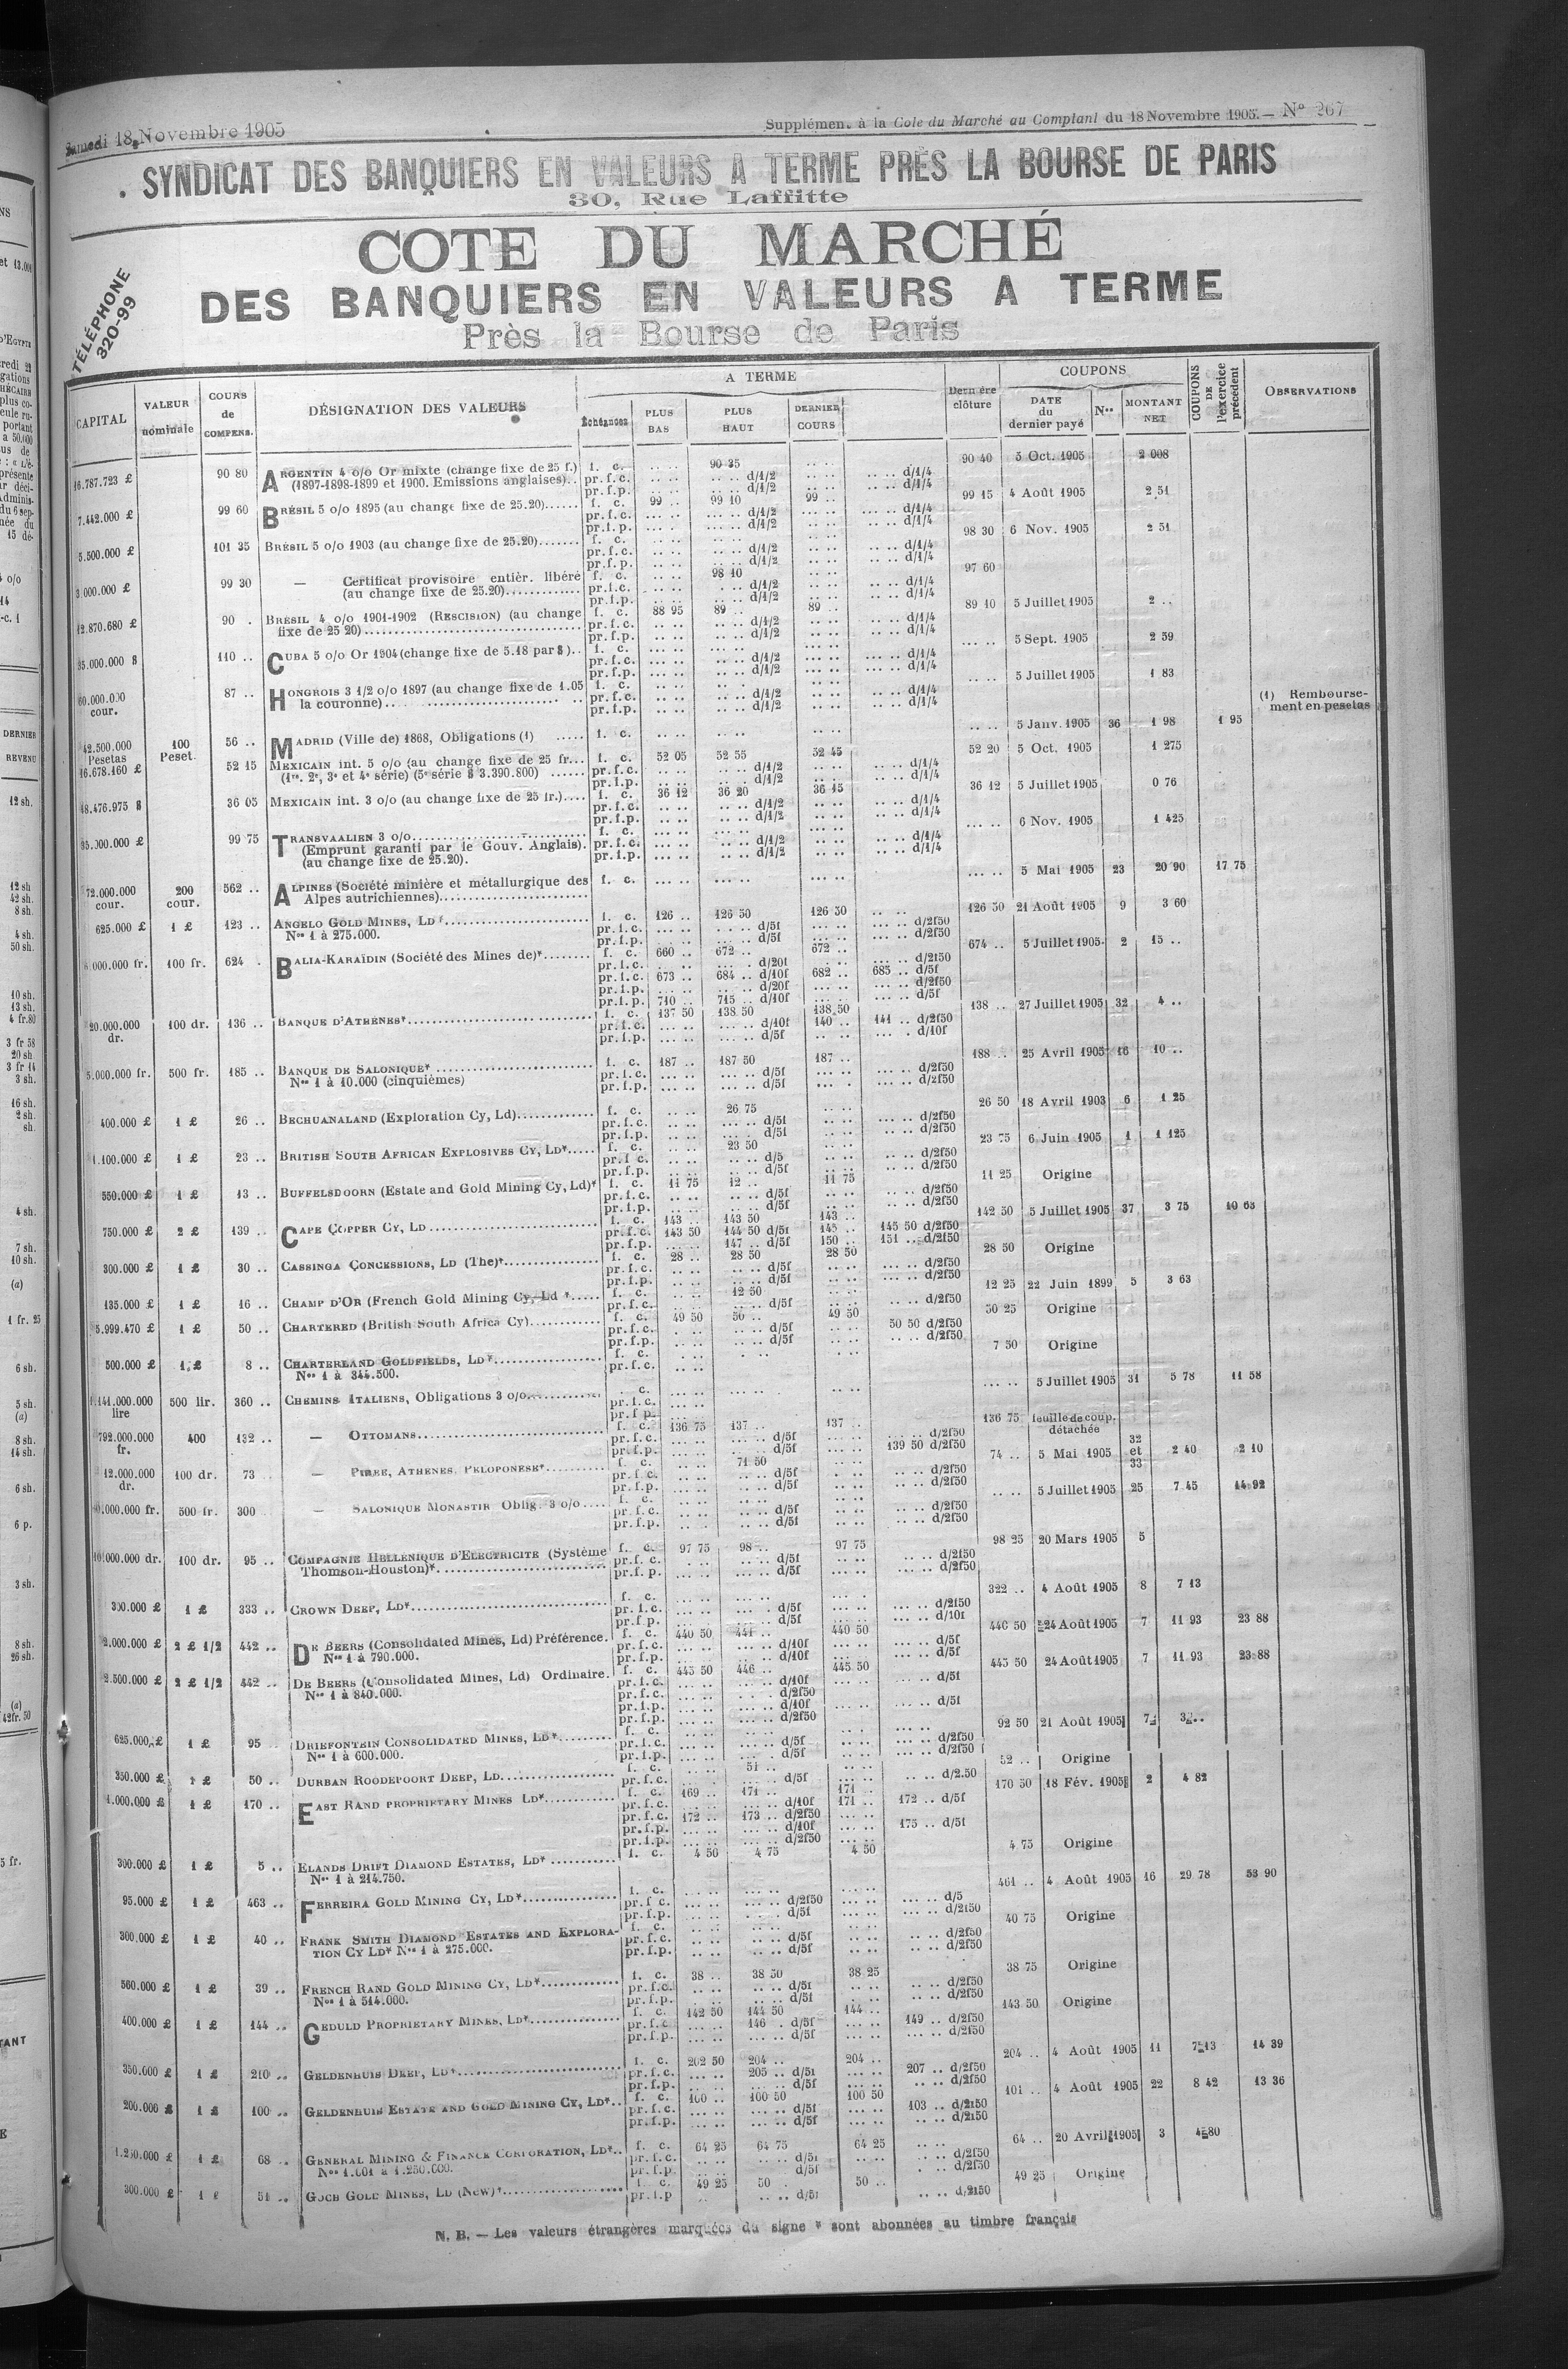 Samedi 18 Novembre 1905
Supplément à la Cote du Marché au Comptant du 18 Novembre 1905. — No 267
SYNDICAT DES BANQUIERS EN VALEURS A TERME PRÈS LA BOURSE DE PARIS
30, Rue Laffitte
TÉLÉPHONE
320-99
COTE DU MARCHÉ
DES BANQUIERS EN VALEURS A TERME
Près la Bourse de Paris
CAPITAL
VALEUR nominale
COURS de COMPENS.
DÉSIGNATION DES VALEURS
A TERME
Échéances
PLUS BAS
PLUS HAUT
DERNIER COURS
Dernière clôture
COUPONS
DATE du dernier payé
Nos
MONTANT NET
COUPONS DE l'exercice précédent
OBSERVATIONS
16.787.723 £ 90 80 ARGENTIN 4 o/o Or mixte (change fixe de 25 f.) f. c. .. .. 90 35 .. .. 90 40 5 Oct. 1905 2 008
(1897-1898-1899 et 1900. Emissions anglaises).. pr.f.c. .. .. .. .. d/1/2 .. .. .. .. d/1/4
pr.f.p. .. .. .. .. d/1/2 .. .. .. .. d/1/4
7.442.000 £ 99 60 BRÉSIL 5 o/o 1895 (au change fixe de 25.20)...... f. c. 99 .. 99 10 99 .. 99 15 4 Août 1905 2 51
pr.f.c. .. .. d/1/2 .. .. d/1/4
pr.f.p. .. .. d/1/2 .. .. d/1/4
5.500.000 £ 101 35 BRÉSIL 5 o/o 1903 (au change fixe de 25.20)....... f. c. 98 30 6 Nov. 1905 2 51
pr.f.c. .. .. d/1/2 .. .. d/1/4
pr.f.p. .. .. d/1/2 .. .. d/1/4
3.000.000 £ 99 30 — Certificat provisoire entièr. libéré f. c. .. .. 98 10 .. .. 97 60
(au change fixe de 25.20)............ pr.f.c. .. .. d/1/2 .. .. d/1/4
pr.f.p. .. .. d/1/2 .. .. d/1/4
12.870.680 £ 90 . BRÉSIL 4 o/o 1901-1902 (RESCISION) (au change f. c. 88 95 89 .. 89 .. 89 10 5 Juillet 1905 2 ..
fixe de 25 20)........ pr.f.c. .. .. d/1/2 .. .. d/1/4
pr.f.p. .. .. d/1/2 .. .. d/1/4
35.000.000 $ 110 .. CUBA 5 o/o Or 1904 (change fixe de 5.18 par $).. f. c. .. .. 5 Sept. 1905 2 59
pr.f.c. .. .. d/1/2 .. .. d/1/4
pr.f.p. .. .. d/1/2 .. .. d/1/4
60.000.000 cour. 87 .. HONGROIS 3 1/2 o/o 1897 (au change fixe de 1.05 f. c. .. .. 5 Juillet 1905 1 83
la couronne).. pr.f.c. .. .. d/1/2 .. .. d/1/4
pr.f.p. .. .. d/1/2 .. .. d/1/4
(1) Remboursement en pesetas
42.500.000 Pesetas 100 Peset. 56 .. MADRID (Ville de) 1868, Obligations (1) ..... f. c. .. .. 5 Janv. 1905 36 1 98 1 95
16.678.160 £ 52 15 MEXICAIN int. 5 o/o (au change fixe de 25 fr... f. c. 52 05 52 55 52 45 52 20 5 Oct. 1905 1 275
(1re, 2e, 3e et 4e série) (5e série $ 3.390.800) ...... pr.f.c. .. .. d/1/2 .. .. d/1/4
pr.f.p. .. .. d/1/2 .. .. d/1/4
48.476.975 $ 36 05 MEXICAIN int. 3 o/o (au change fixe de 25 fr.).... f. c. 36 12 36 20 36 15 36 12 5 Juillet 1905 0 76
pr.f.c. .. .. d/1/2 .. .. d/1/4
pr.f.p. .. .. d/1/2 .. .. d/1/4
35.000.000 £ 99 75 TRANSVAALIEN 3 o/o........ f. c. .. .. 6 Nov. 1905 1 425
(Emprunt garanti par le Gouv. Anglais). pr.f.c. .. .. d/1/2 .. .. d/1/4
(au change fixe de 25.20). pr.f.p. .. .. d/1/2 .. .. d/1/4
72.000.000 cour. 200 cour. 562 .. ALPINES (Société minière et métallurgique des f. c. .. .. 5 Mai 1905 23 20 90 17 75
Alpes autrichiennes)........
625.000 £ 1 £ 123 .. ANGELO GOLD MINES, LD*........ f. c. 126 .. 126 50 126 50 126 50 21 Août 1905 9 3 60
Nos 1 à 275.000. pr.f.c. .. .. d/5f .. .. d/2f50
pr.f.p. .. .. d/5f .. .. d/2f50
100 fr. 624 . BALIA-KARAÏDIN (Société des Mines de)*........ f. c. 660 .. 672 .. 672 .. 674 .. 5 Juillet 1905 2 15 ..
pr.f.c. .. .. d/20f .. .. d/2f50
pr.f.c. 673 .. 684 .. d/10f 682 .. 685 .. d/5f
pr.f.p. .. .. d/20f .. .. d/2f50
pr.f.p. 710 .. 715 .. d/10f .. .. d/5f
20.000.000 dr. 100 dr. 136 .. BANQUE D'ATHÈNES*........ f. c. 137 50 138 50 138 50 138 .. 27 Juillet 1905 32 4 ..
pr.f.c. .. .. d/10f 140 .. 141 .. d/2f50
pr.f.p. .. .. d/5f .. .. d/10f
5.000.000 fr. 500 fr. 185 .. BANQUE DE SALONIQUE*........ f. c. 187 .. 187 50 187 .. 188 .. 25 Avril 1905 16 10 ..
Nos 1 à 10.000 (cinquièmes) pr.f.c. .. .. d/5f .. .. d/2f50
pr.f.p. .. .. d/5f .. .. d/2f50
400.000 £ 1 £ 26 .. BECHUANALAND (Exploration Cy, Ld)........ f. c. .. .. 26 75 .. .. 26 50 18 Avril 1903 6 1 25
pr.f.c. .. .. d/5f .. .. d/2f50
pr.f.p. .. .. d/5f .. .. d/2f50
1.100.000 £ 1 £ 23 .. BRITISH SOUTH AFRICAN EXPLOSIVES CY, LD*..... f. c. .. .. 23 50 .. .. 23 75 6 Juin 1905 1 1 125
pr.f.c. .. .. d/5 .. .. d/2f50
pr.f.p. .. .. d/5f .. .. d/2f50
550.000 £ 1 £ 13 .. BUFFELSDOORN (Estate and Gold Mining Cy, Ld)* f. c. 11 75 12 .. 11 75 11 25 Origine
pr.f.c. .. .. d/5f .. .. d/2f50
pr.f.p. .. .. d/5f .. .. d/2f50
750.000 £ 2 £ 139 .. CAPE COPPER CY, LD........ f. c. 143 .. 143 50 143 .. 142 50 5 Juillet 1905 37 3 75 10 63
pr.f.c. 143 50 144 50 d/5f 145 .. 145 50 d/2f50
pr.f.p. .. .. 147 .. d/5f 150 .. 151 .. d/2f50
300.000 £ 1 £ 30 .. CASSINGA CONCESSIONS, LD (The)*........ f. c. 28 .. 28 50 28 50 28 50 Origine
pr.f.c. .. .. d/5f .. .. d/2f50
pr.f.p. .. .. d/5f .. .. d/2f50
135.000 £ 1 £ 16 .. CHAMP D'OR (French Gold Mining Cy, Ld *..... f. c. .. .. 12 50 12 25 22 Juin 1899 5 3 63
pr.f.c. .. .. d/5f .. .. d/2f50
5.999.470 £ 1 £ 50 .. CHARTERED (British South Africa Cy)........ f. c. 49 50 50 .. 49 50 50 25 Origine
pr.f.c. .. .. d/5f .. .. 50 50 d/2f50
pr.f.p. .. .. d/5f .. .. d/2f50
500.000 £ 1 £ 8 .. CHARTERLAND GOLDFIELDS, LD*........ f. c. .. .. 7 50 Origine
Nos 1 à 344.500. pr.f.c. .. ..
lire 500 lir. 360 .. CHEMINS ITALIENS, Obligations 3 o/o........ c. .. .. 5 Juillet 1905 31 5 78 11 58
pr.f.c. .. ..
pr.f p. .. ..
792.000.000 fr. 400 132 .. — OTTOMANS........ f. c. 136 75 137 .. 137 .. 136 75 feuille de coup. détachée
pr.f.c. .. .. d/5f .. .. d/2f50
pr.f.p. .. .. d/5f .. .. 139 50 d/2f50
12.000.000 dr. 100 dr. 73 — PIRÉE, ATHÈNES, PÉLOPONÈSE*........ f. c. .. .. 71 50 .. .. 74 .. 5 Mai 1905 32 et 33 2 40 2 10
pr.f.c. .. .. d/5f .. .. d/2f50
pr.f.p. .. .. d/5f .. .. d/2f50
500 fr. 300 — SALONIQUE MONASTIR Oblig. 3 o/o.... f. c. .. .. 5 Juillet 1905 25 7 45 14 92
pr.f.c. .. .. d/5f .. .. d/2f50
pr.f.p. .. .. d/5f .. .. d/2f50
100 dr. 95 .. COMPAGNIE HELLÉNIQUE D'ELECTRICITE (Système f. c. 97 75 98 .. 97 75 98 25 20 Mars 1905 5
Thomson-Houston)*........ pr.f.c. .. .. d/5f .. .. d/2f50
pr.f.p. .. .. d/5f .. .. d/2f50
300.000 £ 1 £ 333 .. CROWN DEEP, LD*........ f. c. .. .. 322 .. 4 Août 1905 8 7 13
pr.f.c. .. .. d/5f .. .. d/2f50
pr.f.p. .. .. d/5f .. .. d/10f
2.000.000 £ 2 £ 1/2 442 .. DE BEERS (Consolidated Mines, Ld) Préférence. f. c. 440 50 441 .. 440 50 440 50 24 Août 1905 7 11 93 23 88
Nos 1 à 790.000. pr.f.c. .. .. d/10f .. .. d/5f
pr.f.p. .. .. d/10f .. .. d/5f
2.500.000 £ 2 £ 1/2 442 .. DE BEERS (Consolidated Mines, Ld) Ordinaire. f. c. 445 50 446 .. 445 50 445 50 24 Août 1905 7 11 93 23 88
Nos 1 à 840.000. pr.f.c. .. .. d/10f .. .. d/5f
pr.f.c. .. .. d/2f50
pr.f.p. .. .. d/10f .. .. d/5f
pr.f.p. .. .. d/2f50
625.000 £ 1 £ 95 DRIEFONTEIN CONSOLIDATED MINES, LD*........ f. c. .. .. 92 50 21 Août 1905
Nos 1 à 600.000. pr.f.c. .. .. d/5f .. .. d/2f50
pr.f.p. .. .. d/5f .. .. d/2f50
350.000 £ 1 £ 50 .. DURBAN ROODEPOORT DEEP, LD........ f. c. .. .. 51 .. .. .. 52 .. Origine
pr.f.c. .. .. d/5f .. .. d/2.50
1.000.000 £ 1 £ 170 .. EAST RAND PROPRIETARY MINES LD*........ f. c. 169 .. 171 .. 171 .. 170 50 18 Fév. 1905 2 4 82
pr.f.c. .. .. d/10f 171 .. 172 .. d/5f
pr.f.c. 172 .. 173 .. d/2f50 .. ..
pr.f.p. .. .. d/10f .. .. 175 .. d/5f
pr.f.p. .. .. d/2f50 .. ..
300.000 £ 1 £ 5 .. ELANDS DRIFT DIAMOND ESTATES, LD*........ f. c. 4 50 4 75 4 50 4 75 Origine
Nos 1 à 214.750.
95.000 £ 1 £ 463 .. FERREIRA GOLD MINING CY, LD*........ f. c. .. .. 461 .. 4 Août 1905 16 29 78 53 90
pr.f.c. .. .. d/2f50 .. .. d/5
pr.f.p. .. .. d/5f .. .. d/2f50
300.000 £ 1 £ 40 .. FRANK SMITH DIAMOND ESTATES AND EXPLORA- f. c. .. .. 40 75 Origine
TION CY LD* Nos 1 à 275.000. pr.f.c. .. .. d/5f .. .. d/2f50
pr.f.p. .. .. d/5f .. .. d/2f50
560.000 £ 1 £ 39 .. FRENCH RAND GOLD MINING CY, LD*........ f. c. 38 .. 38 50 38 25 38 75 Origine
Nos 1 à 514.000. pr.f.c. .. .. d/5f .. .. d/2f50
pr.f.p. .. .. d/5f .. .. d/2f50
400.000 £ 1 £ 144 .. GEDULD PROPRIETARY MINES, LD*........ f. c. 142 50 144 50 144 .. 143 50 Origine
pr.f.c. .. .. 146 . d/5f .. .. 149 .. d/2f50
pr.f.p. .. .. d/5f .. .. d/2f50
350.000 £ 1 £ 210 .. GELDENHUIS DEEP, LD*........ f. c. 202 50 204 .. 204 .. 204 .. 4 Août 1905 11 7 13 14 39
pr.f.c. .. .. 205 .. d/5f .. .. 207 .. d/2f50
pr.f.p. .. .. d/5f .. .. d/2f50
200.000 £ 1 £ 100 .. GELDENHUIS ESTATE AND GOLD MINING CY, LD*.. f. c. 100 .. 100 50 100 50 101 .. 4 Août 1905 22 8 42 13 36
pr.f.c. .. .. d/5f .. .. 103 .. d/2f50
pr.f.p. .. .. d/5f .. .. d/2f50
1.250.000 £ 1 £ 68 .. GENERAL MINING & FINANCE CORPORATION, LD*.. f. c. 64 25 64 75 64 25 64 .. 20 Avril 1905 3 4 80
Nos 1.001 à 1.250.000. pr.f.c. .. .. d/5f .. .. d/2f50
pr.f.p. d/5f .. .. d/2f50
300.000 £ 1 £ 51 .. GOCH GOLD MINES, LD (New)*........ f. c. 49 25 50 . 50 .. 49 25 Origine
pr.f.p .. .. d/5f .. .. d/2f50
N. B. — Les valeurs étrangères marquées du signe * sont abonnées au timbre français